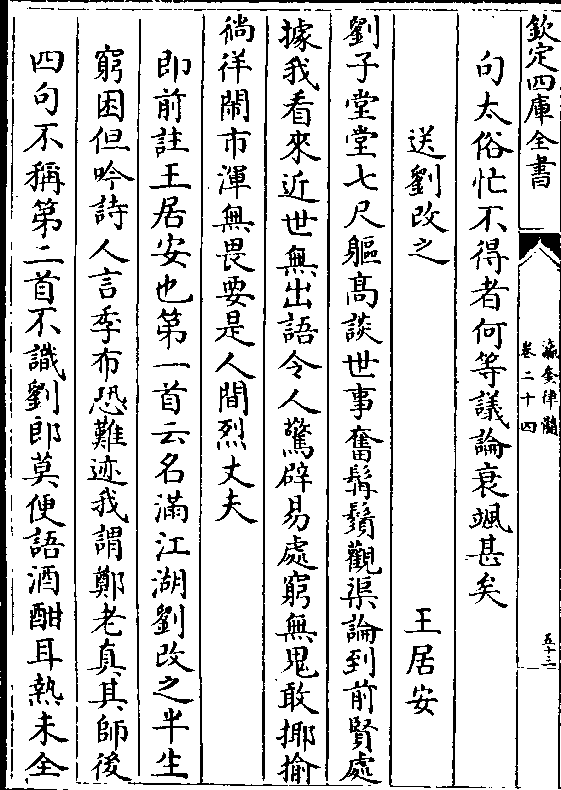 欽定四庫全書
瀛奎律髓
卷二十四
五十三
句太俗忙不得者何等議論衰颯甚矣
送劉改之　王居安
劉子堂堂七尺軀高談世事奮髯鬚觀渠論到前賢處
據我看來近世無出語令人驚辟易處窮無鬼敢揶揄
徜徉鬧市渾無畏要是人間烈丈夫
即前註王居安也第一首云名滿江湖劉改之半生
窮困但吟詩人言季布恐難迹我謂鄭老真其師後
四句不稱第二首不識劉郎莫便語酒酣耳熱未全